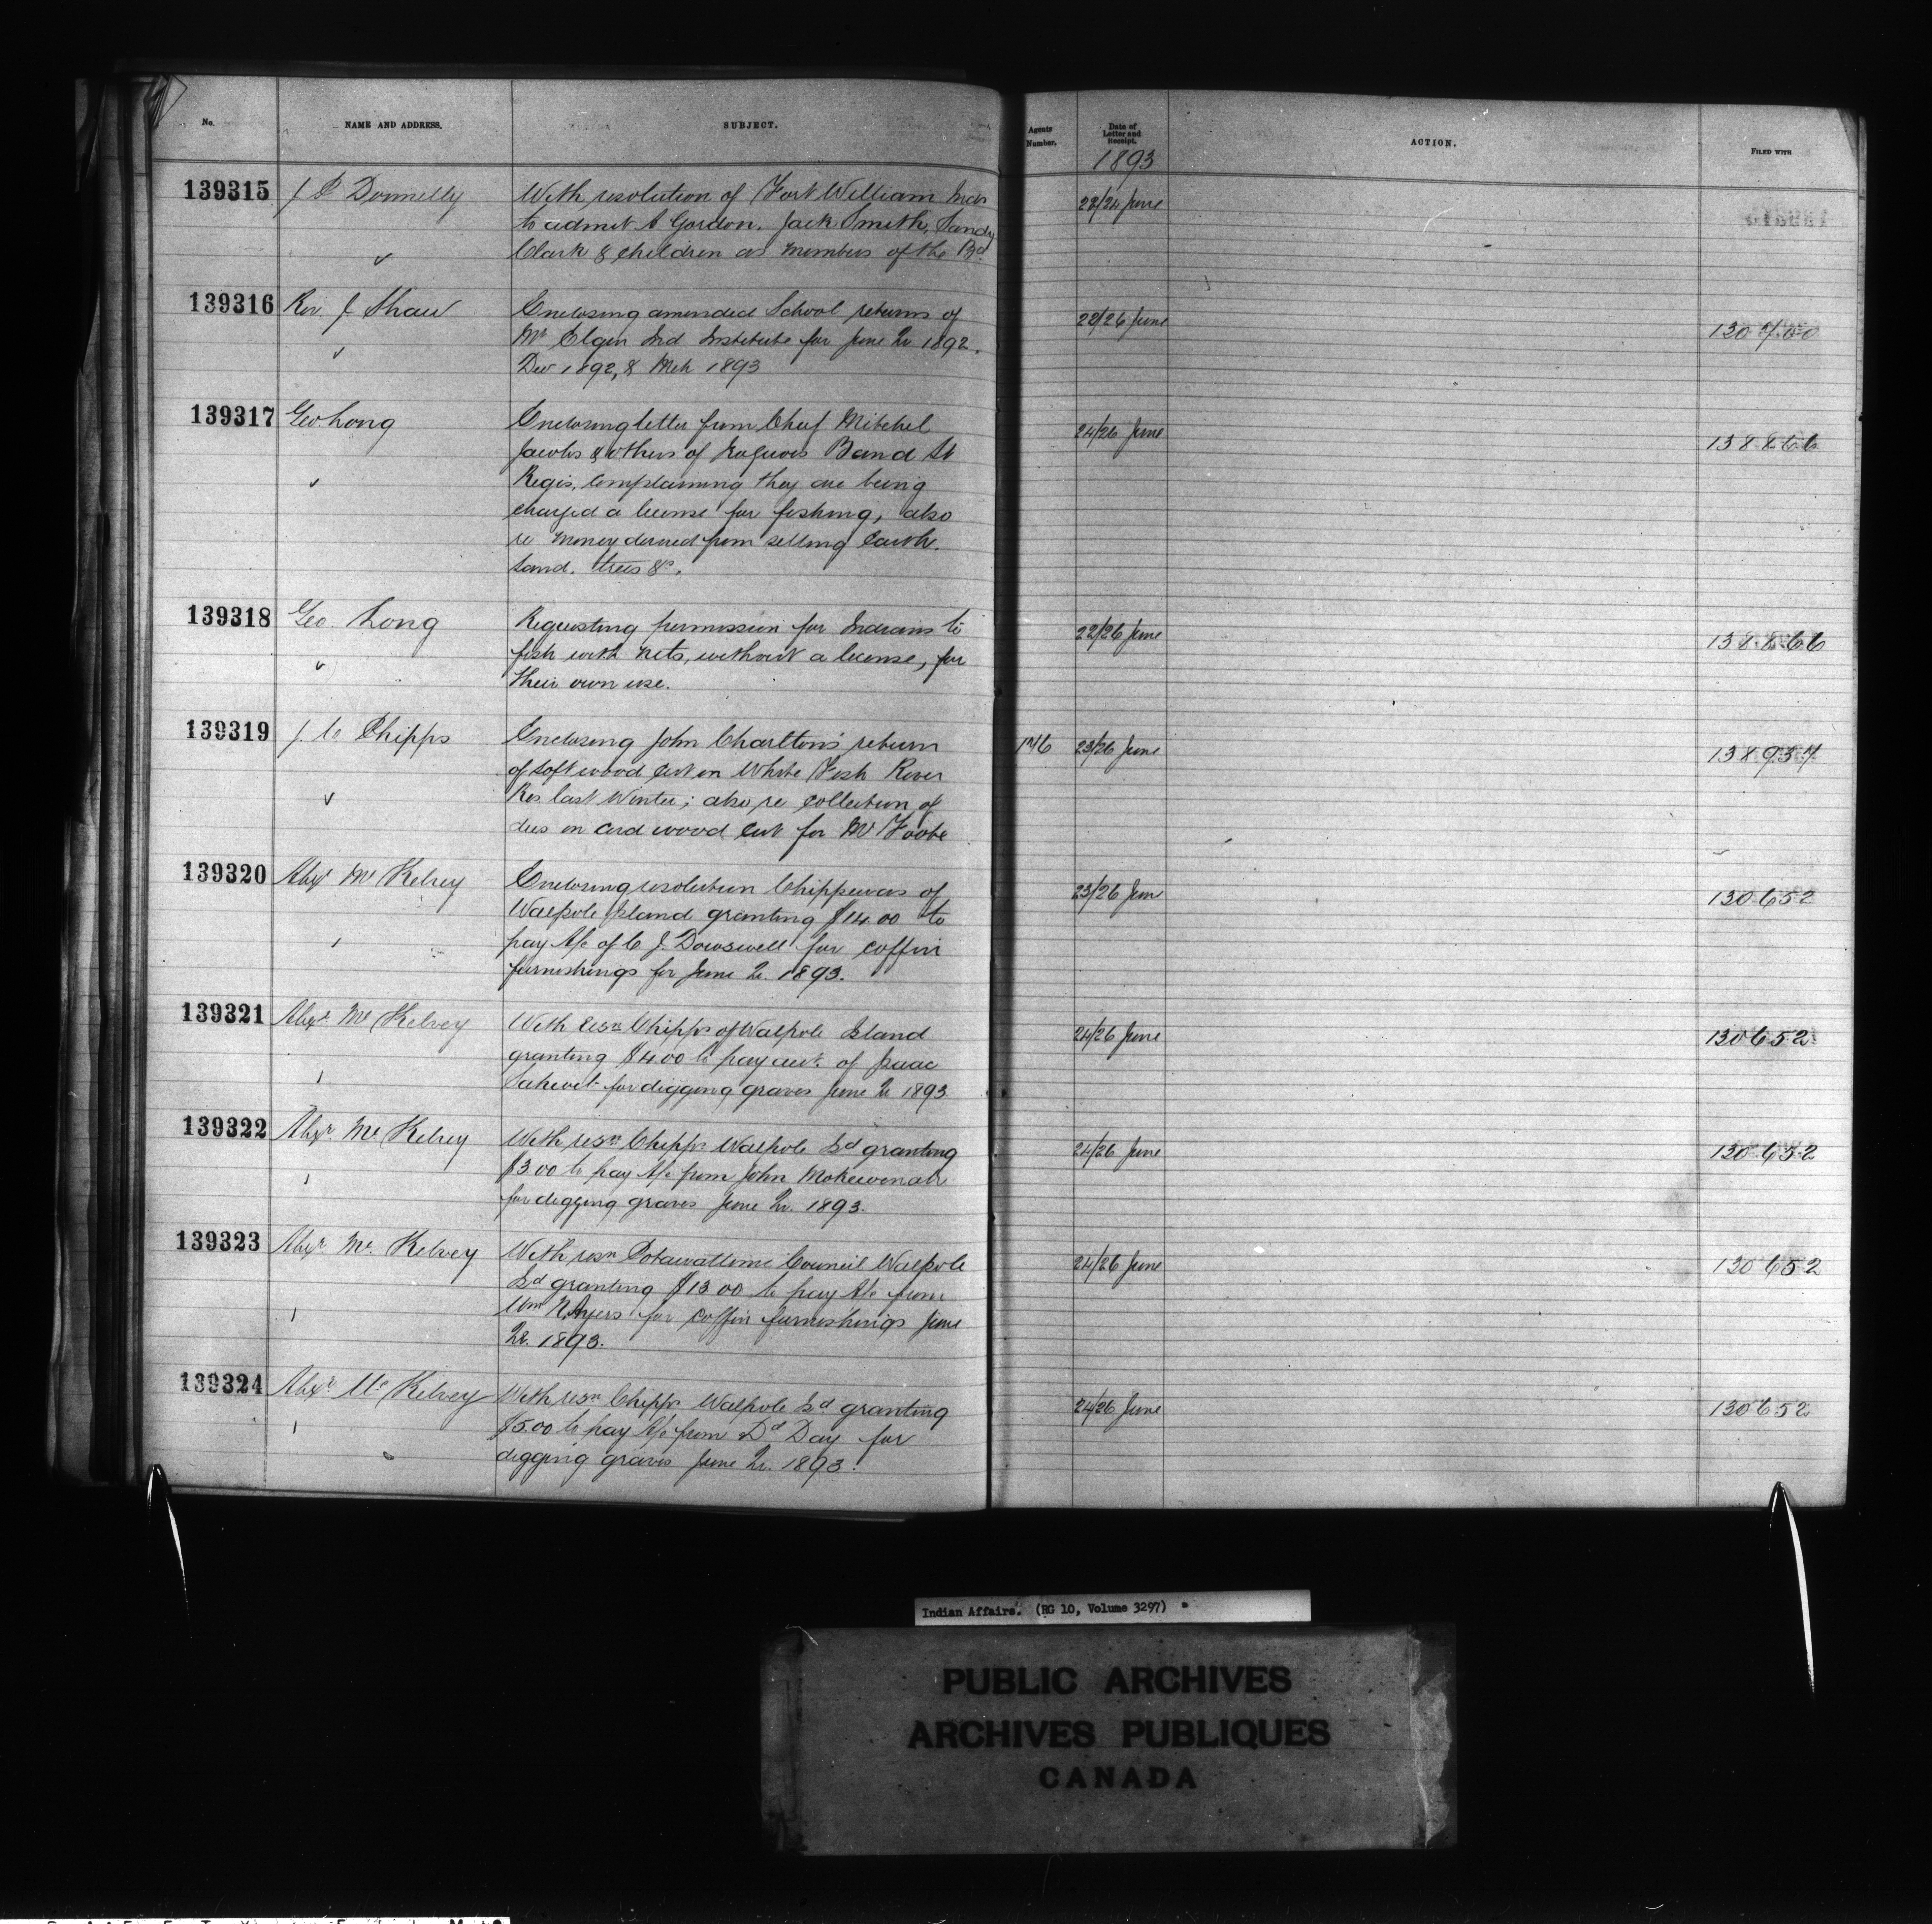 No.
NAME AND ADDRESS.
SUBJECT.
Agents Number.
Date of Letter and Receipt.
ACTION.
FILED WITH
1893
139315 J P Donnelly
With resolution of Fort William Inds
to admit A Gordon, Jack Smith, Sandy
Clark & children as members of the Bd
22/24 June
139316 Rev. J Shaw
Enclosing amended School returns of
Mt Elgin Ind Institute for June Qr 1892,
Dec 1892, & Mch 1893
22/26 June
130760
139317 Geo Long
Enclosing letter from Chief Mitchel
Jacobs & others of Iroquois Band St
Regis, complaining they are being
charged a license for fishing, also
re money derived from selling Earth,
Sand, trees &c.
24/26 June
138866
139318 Geo. Long
Requesting permission for Indians to
fish with nets, without a license, for
their own use.
22/26 June
138866
139319 J. C. Phipps
Enclosing John Charlton's return
of soft wood cut on White Fish River
Res last Winter; also re collection of
dues on cord wood cut for Mr Foote
176
23/26 June
138937
139320 Alexr McKelvey
Enclosing resolution Chippewas of
Walpole Island granting $14.00 to
pay A/c of C J. Dowswell for coffin
furnishings for June Qr. 1893.
23/26 June
130652
139321 Alexr McKelvey
With resn Chipps of Walpole Island
granting $4.00 to pay acct. of Isaac
for digging graves June Qr 1893
24/26 June
130652
139322 Alexr McKelvey
With resn Chipps Walpole Isd granting
$3.00 to pay A/c from John
for digging graves June Qr. 1893.
24/26 June
130652
139323 Alexr McKelvey
With resn Potawattomi Council Walpole
Isd granting $13 00 to pay A/c from
Wm N. Ayers for coffin furnishings June
Qr. 1893.
24/26 June
130652
139324 Alexr McKelvey
With resn Chipps Walpole Isd granting
$5.00 to pay A/c from Dd Day for
digging graves June Qr. 1893.
24/26 June
130652
Indian Affairs. (RG 10, Volume 3297)
PUBLIC ARCHIVES
ARCHIVES PUBLIQUES
CANADA